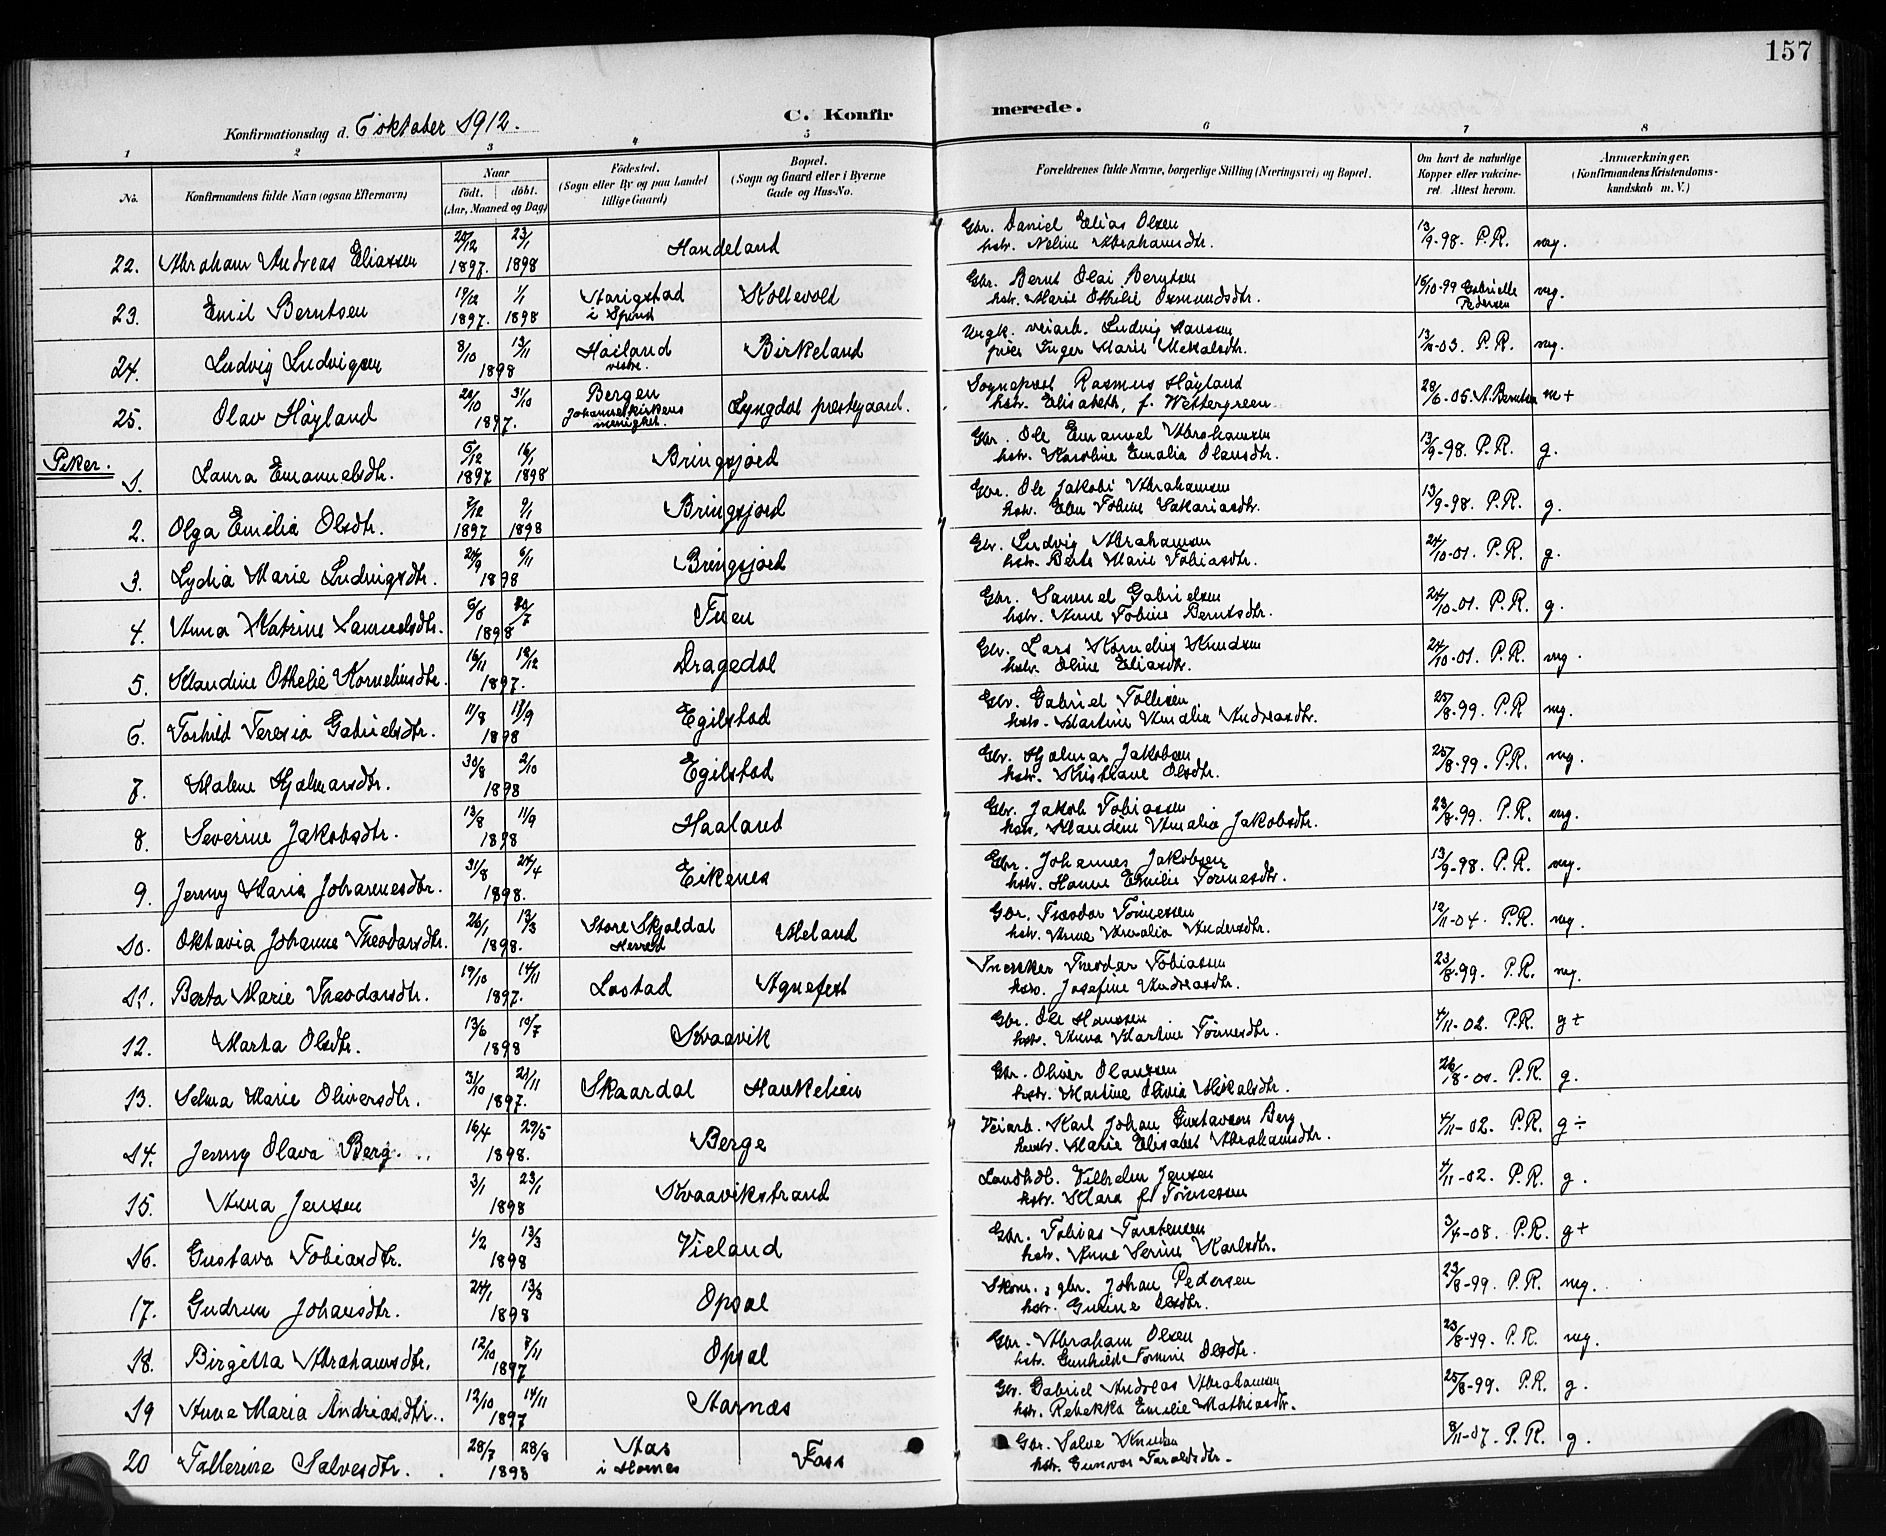 157
Konfirmationsdag d. 6 oktober 1912.
C. Konfirmerede.
1 2 3 4 5 6 7 8
No.
Konfirmandens fulde Navn (ogsaa Efternavn)
Naar
født. døbt.
(Aar, Maaned og Dag)
Fødested.
(Sogn eller By og paa Landet
tillige Gaard)
Bopæl.
(Sogn og Gaard eller i Byerne
Gade og Hus-No.
Forældrenes fulde Navne, borgerlige Stilling (Næringsvei) og Bopæl.
Om havt de naturlige
Kopper eller vakcine-
ret. Attest herom.
Anmærkninger.
(Konfirmandens Kristendoms-
kundskab m. V.)
22. Abraham Andreas Eliassen 1897. 23/1 1898 Handeland Gbr. Daniel Elias Olsen
hstr. Neline Abrahamsdtr. 13/9-98. P.R. mg.
23. Emil Berntsen 19/12 1897. 1/1 1898 i Spind Koltevold Gbr. Bernt Olai Berntsen
hstr. Marie Othelie Osmundsdtr. 15/10-99 Gabrielle Pedersen mg.
24. Ludvig Ludvigsen 8/10 13/11 1898 Høiland vestre. Birkeland Ungk. veiarb. Ludvig Hanssen
pike Inger Marie Mekalsdtr. P.R. mg.
25. Olav Høyland 31/10 1897. Bergen Johanneskirkens menighet. Lyngdal prestegaard. Sogneprest Rasmus Høyland
hstr. Elisabeth, f. Wettergreen. 28/6-05 A. Berntsen m+
Piker.
1. Laura Emanuelsdtr. 5/12 1897 16/1 1898 Bringsjord Gbr. Ole Emanuel Abrahamsen
hstr. Karoline Emalia Olausdtr. 13/9-98. P.R. g.
2. Olga Emilia Olsdtr. 1897 1898 Bringsjord Gbr. Ole Jakobi Abrahamsen
hstr. Elen Tobine Sakariasdtr. 13/9-98. P.R. g.
3. Lydia Marie Ludvigsdtr. 24/9 6/11 1898 Bringsjord Gbr. Ludvig Abrahamsen
hstr. Berte Marie Tobiasdtr. 24/10-01. P.R. g.
4. Anna Katrine Samuelsdtr. 1898 Tuen Gbr. Samuel Gabrielsen
hstr. Anne Tobine Berntsdtr. 24/10-01. P.R. g.
5. Klaudine Othelie Korneliusdtr. 16/11 18/12 1897. Dragedal Gbr. Lars Kornelius Knudsen
hstr. Oline Eliasdtr. 24/10-01. P.R. mg.
6. Torhild Teresia Gabrielsdtr. 11/8 18/9 1898 Egilstad Gbr. Gabriel Tollisen
hstr. Martine Amalia Andreasdtr. 25/8-99. P.R mg.
7. Malene Hjalmarsdtr. 30/8 2/10 1898 Egilstad Gbr. Hjalmar Jakobsen
hstr. Kristiane Olsdtr. 25/8-99. P.R. mg.
8. Severine Jakobsdtr. 13/8 11/9 1898 Haaland Gbr. Jakob Tobiassen
hstr. Klaudine Amalia Jakobsdtr. 23/8-99. P.R. mg.
9. Jenny Maria Johannesdtr. 24/4 1898. Eikenes Gbr. Johannes Jakobsen
hstr. Hanne Emilie Tønnesdtr. 13/9-98. P.R. mg.
10. Oktavia Johanne Theodorsdtr. 26/1 13/3 1898. Store Skjoldal Herred Meland Gbr. Theodor Tønnessen
hstr. Anne Amalia Andersdtr. 12/11-04. P.R. mg.
11. Berta Marie Theodorsdtr. 19/10 14/11 1897. Lostad Agnefest Snekker Theodor Tobiassen
hstr. Josefine Andreasdtr. 23/8-99. P.R. mg.
12. Marta Olsdtr. 13/6 10/7 1898 Kvaavik Gbr. Ole Hanssen
hstr. Anna Martine Tønnesdtr. 4/11-02. P.R. g+
13. Selma Marie Oliversdtr. 31/10 21/11 1897. Skaardal Haukelien Gbr. Oliver Olaussen
hstr. Martine Olivia Mikalsdtr. P.R. g.
14. Jenny Olava Berg. 16/4 29/5 1898. Berge Veiarb. Karl Johan Gustavsen Berg
hustr. Marie Elisabet Abrahamsdtr. 4/11-02. P.R. g÷
15. Anna Jensen 3/1 23/1 1898 Kvaavikstrand Landhdl. Vilhelm Jensen
hstr. Klara f. Tønnessen 4/11-02. P.R. g.
16. Gustava Tobiasdtr. 1/2 13/3 1898 Vieland Gbr. Tobias Torstensen
hstr. Anne Serine Karlsdtr. P.R. g+
17. Gudrun Johansdtr. 24/1 13/3 1898 Opsal Skom., gbr. Johan Pedersen
hstr. Gurine Olsdtr. 23/8-99. P.R. mg.
18. Birgitta Abrahamsdtr. 12/10 7/11 1897 Opsal Gbr. Abraham Olsen
hstr. Gunhild Tomine Olsdtr. 23/8-99. P.R. mg.
19 Anne Maria Andreasdtr. 12/10 14/11 1897 Aarnæs Gbr. Gabriel Andreas Abrahamsen
hstr. Rebekka Emelie Mathiasdtr. 25/8-99. P.R. g.
20 Tallerine Salvesdtr. 28/7 28/8 1898 Aas i Hornes Foss Gbr. Salve Knudsen
hstr. Gunvor Taraldsdtr. 8/11-07. P.R. g.